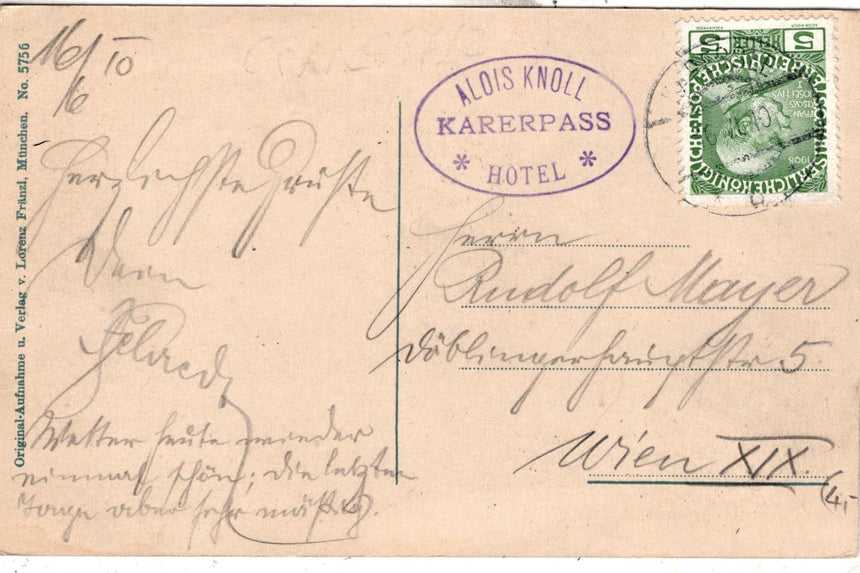 Original-Aufnahme u. Verlag v. Lorenz Fränzl, München. No. 5756
16/ 10
6
Herzlichste Grüße
Dein
Wetter heute wieder
einmal schön; die letzten
Tage aber sehr mäßig.
ALOIS KNOLL
KARERPASS
* HOTEL *
5 HELLER 5
KAISERLICHE KÖNIGLICHE ÖSTERREICHISCHE POST
FRANCISCUS
JOSEPHUS
1908
Herrn
Rudolf Mayer
Döblingerhauptstr 5.
Wien XIX.